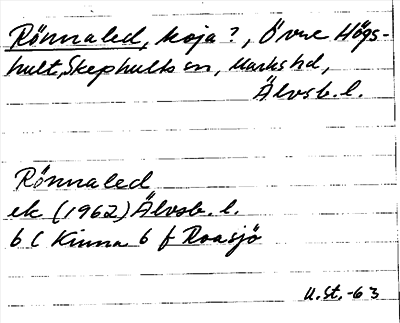 Rönnaled, koja?, Övre Högs-
hult, Skephults sn, Marks hd,
Älvsb. l.
Rönnaled
ek (1962) Älvsb. l.
6 C Kinna 6 f Roasjö
U. St. -63